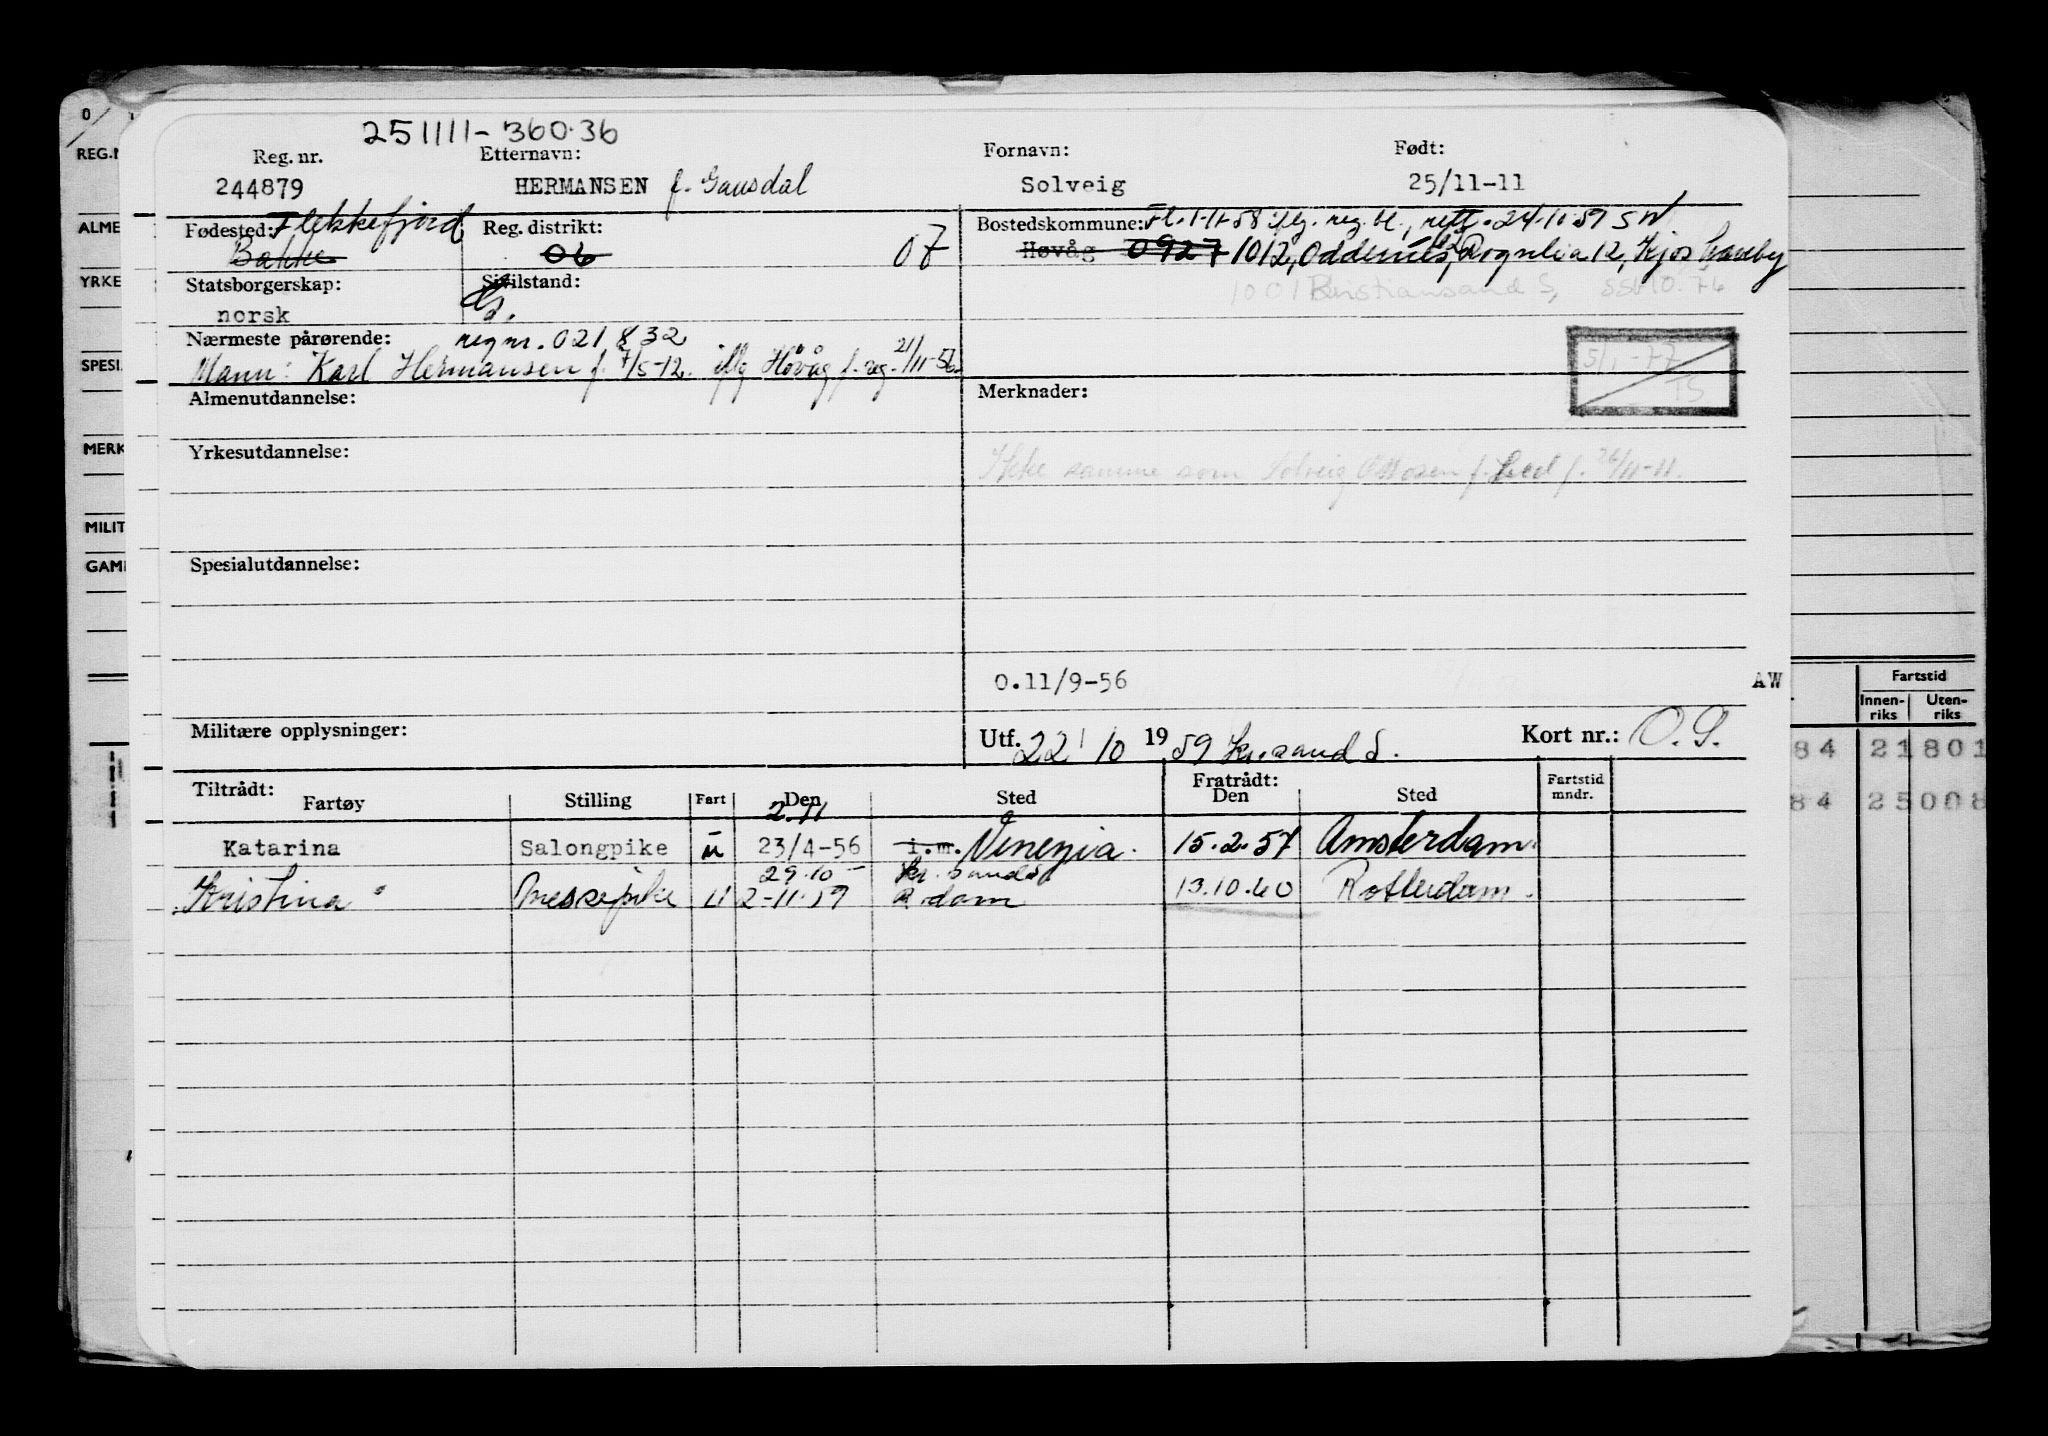 0
REG.N
ALME
YRKE
SPESI
MERK
MILIT
GAM
251111-36036
Reg. nr. Etternavn: Fornavn: Født:
244879 HERMANSEN f. Gausdal Solveig 25/11-11
Fødested: Flekkefjord Reg. distrikt: Bostedskommune: Fl. 1-11-58 iflg. reg. bl., rett. 24.10.59 SW
Bakke 06 07 Høvåg 0927 1012, Oddernes, Rognlia 12, Kjos Haveby
Statsborgerskap: Sivilstand: 1001 Kristiansand S, SSB 10.76
norsk G.
Nærmeste pårørende: reg nr. 021832
Mann: Karl Hermansen f. 7/5-12. iflg Høvåg f. reg. 21/11-56
5/1-77
TS
Almenutdannelse: Merknader:
Yrkesutdannelse: Ikke samme som Solveig Ottosen f. 26/11-11.
Spesialutdannelse:
0.11/9-56 AW
Militære opplysninger: Utf. 22/10 1959 Kr.sand S. Kort nr.: O.S.
Tiltrådt: Fratrådt:
Fartøy Stilling Fart Den Sted Den Sted Fartstid mndr.
2.11
Katarina Salongpike u 23/4-56 i.m. Venezia. 15.2.57 Amsterdam.
29.10 - Kr. sand S
Kristina " Messepike U 2-11-59 R.dam 13.10.60 Rotterdam.
Fartstid
Innen-riks Uten-riks
84 21801
84 25008